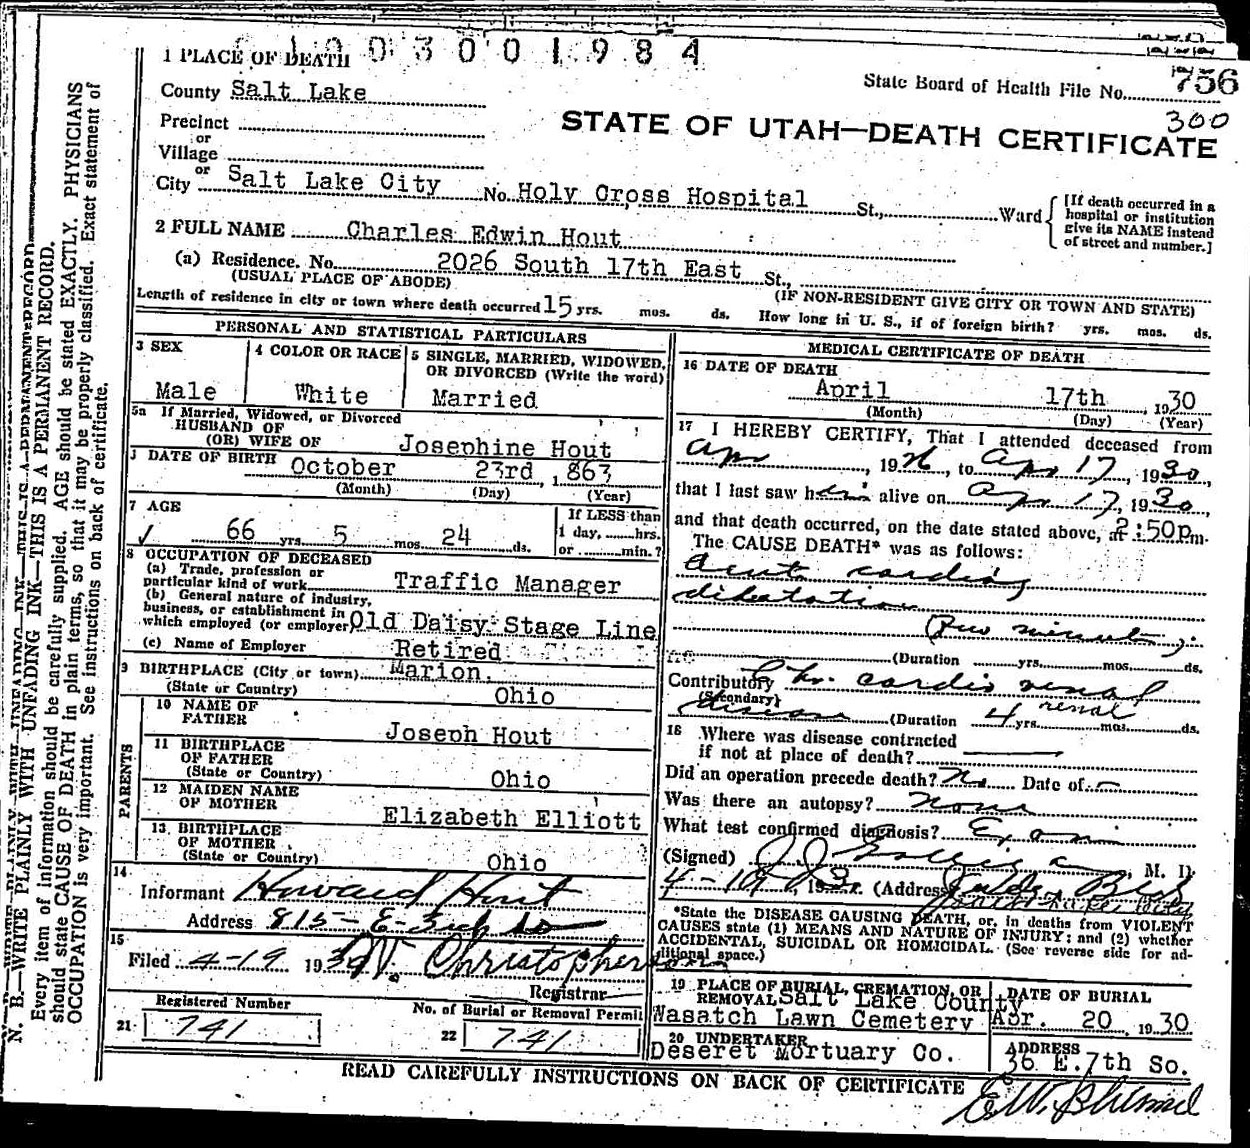 1003001984
1 PLACE OF DEATH
State Board of Health File No. 756
County Salt Lake
300
STATE OF UTAH—DEATH CERTIFICATE
Precinct
or
Village
or
City Salt Lake City No. Holy Cross Hospital St., Ward
[If death occurred in a hospital or institution give its NAME instead of street and number.]
2 FULL NAME Charles Edwin Hout
(a) Residence. No. 2026 South 17th East St.,
(USUAL PLACE OF ABODE) (IF NON-RESIDENT GIVE CITY OR TOWN AND STATE)
Length of residence in city or town where death occurred 15 yrs. mos. ds. How long in U. S., if of foreign birth? yrs. mos. ds.
N. B.—WRITE PLAINLY WITH UNFADING INK—THIS IS A PERMANENT RECORD.
Every item of information should be carefully supplied. AGE should be stated EXACTLY. PHYSICIANS
should state CAUSE OF DEATH in plain terms, so that it may be properly classified. Exact statement of
OCCUPATION is very important. See instructions on back of certificate.
PERSONAL AND STATISTICAL PARTICULARS
3 SEX
Male
4 COLOR OR RACE
White
5 SINGLE, MARRIED, WIDOWED,
OR DIVORCED (Write the word)
Married
5a If Married, Widowed, or Divorced
HUSBAND OF
(OR) WIFE OF Josephine Hout
DATE OF BIRTH October 23rd, 1863
(Month) (Day) (Year)
7 AGE
66 yrs. 5 mos. 24 ds.
If LESS than
1 day, hrs.
or min.?
8 OCCUPATION OF DECEASED
(a) Trade, profession or
particular kind of work Traffic Manager
(b) General nature of industry,
business, or establishment in
which employed (or employer) Old Daisy Stage Line
(c) Name of Employer Retired
9 BIRTHPLACE (City or town) Marion.
(State or Country) Ohio
PARENTS
10 NAME OF
FATHER Joseph Hout
11 BIRTHPLACE
OF FATHER
(State or Country) Ohio
12 MAIDEN NAME
OF MOTHER Elizabeth Elliott
13 BIRTHPLACE
OF MOTHER
(State or Country) Ohio
14
Informant Howard Hout
Address 815 E 3rd So
15
Filed 4-19 1930 Christopherson
Registrar
Registered Number
21 741
No. of Burial or Removal Permit
22 741
MEDICAL CERTIFICATE OF DEATH
16 DATE OF DEATH
April 17th, 1930
(Month) (Day) (Year)
17 I HEREBY CERTIFY, That I attended deceased from
Apr, 1926, to Apr 17, 1930,
that I last saw him alive on Apr 17, 1930,
and that death occurred, on the date stated above, at 2:50 p.m.
The CAUSE DEATH* was as follows:
acute cardiac
dilatation
(few minutes)
(Duration yrs. mos. ds.
Contributory Chr. cardio renal
(Secondary) renal
disease (Duration 4 yrs. mos. ds.
18 Where was disease contracted
if not at place of death?
Did an operation precede death? No Date of —
Was there an autopsy? none
What test confirmed diagnosis? Exam
(Signed) M. D.
4-19, 193 (Address Bldg
Salt Lake City
*State the DISEASE CAUSING DEATH, or, in deaths from VIOLENT
CAUSES state (1) MEANS AND NATURE OF INJURY; and (2) whether
ACCIDENTAL, SUICIDAL OR HOMICIDAL. (See reverse side for ad-
ditional space.)
19 PLACE OF BURIAL, CREMATION, OR
REMOVAL Salt Lake County
Wasatch Lawn Cemetery
DATE OF BURIAL
Apr. 20, 1930
20 UNDERTAKER
Deseret Mortuary Co.
ADDRESS
36 E. 7th So.
READ CAREFULLY INSTRUCTIONS ON BACK OF CERTIFICATE